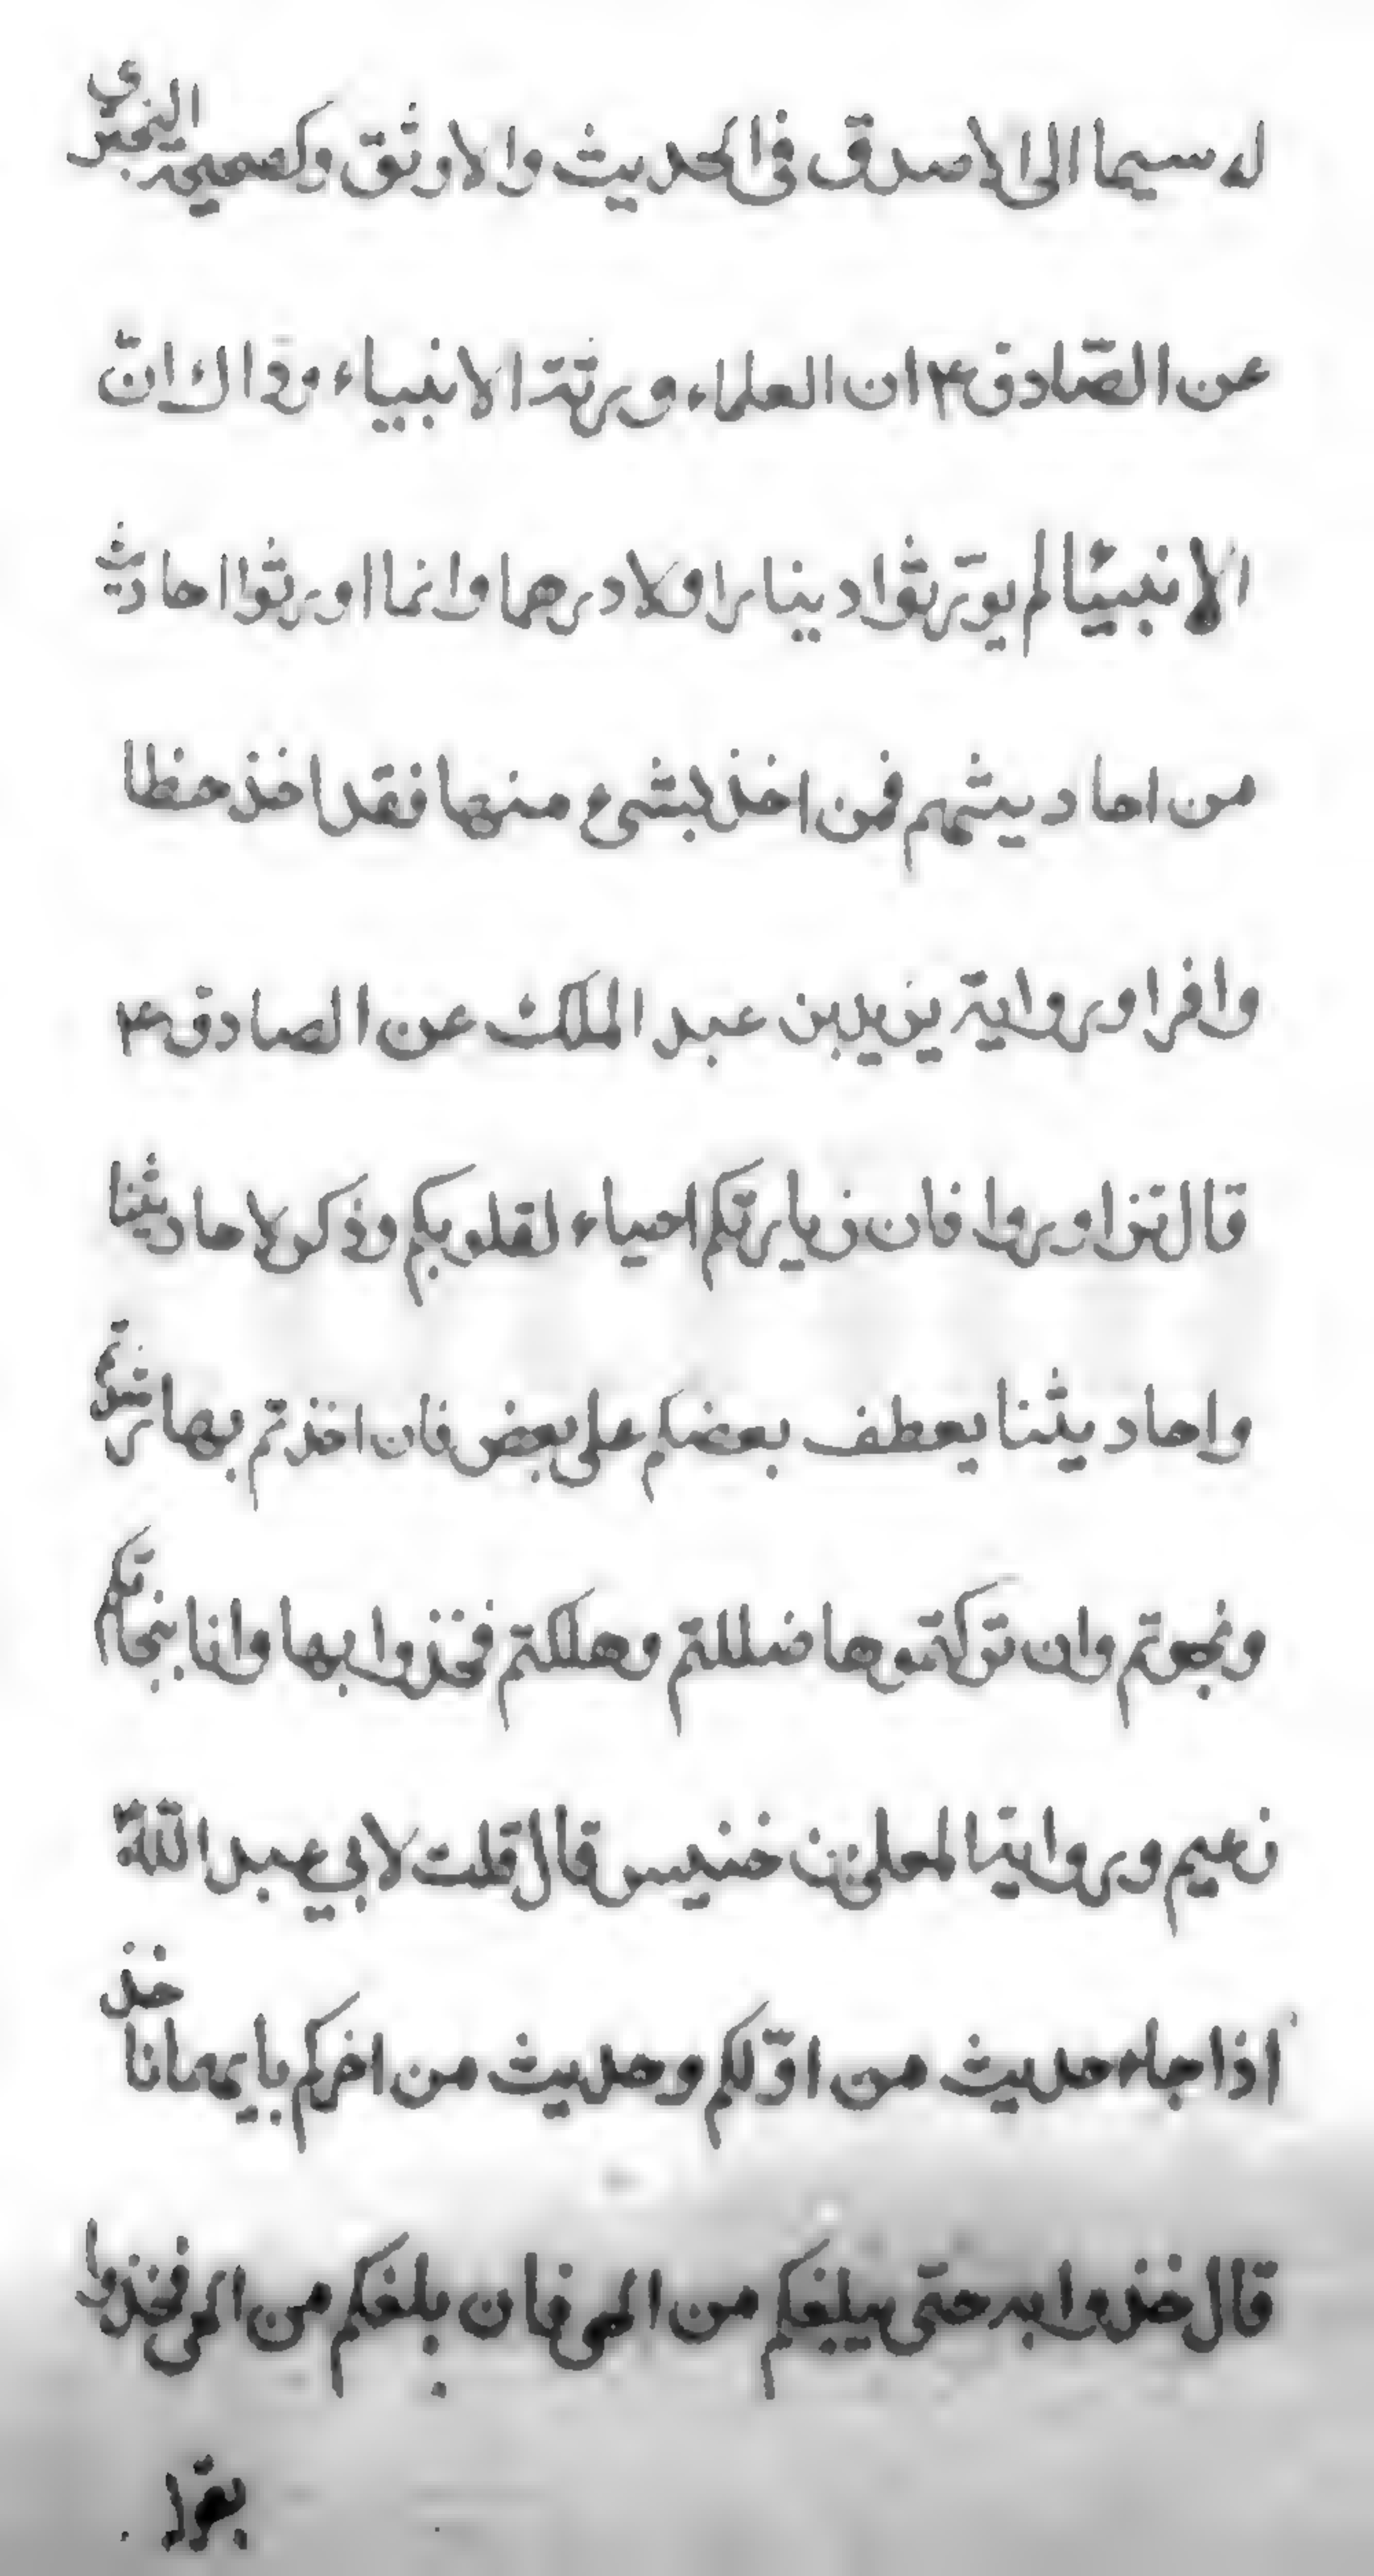 له سيما الى الاصدق فى الحديث والاوثق وكصحيحة البخترى
عن الصّادق ع ان العلماء ورثة الانبياء وذاك انّ
الانبيئا لم يورّثوا دينارا ولا درهما وانما اورثوا احاديث
من احاديثهم فمن اخذ بشىء منها فقد اخذ حظا
وافرا ورواية يزيد بن عبد الملك عن الصادق ع
قال تزاوروا فان زيارتكم احياء لقلوبكم وذكر لاحاديثنا
واحاديثنا يعطف بعضكم على بعض فان اخذتم بها رشدتم
ونجوتم وان تركتموها ضللتم وهلكتم فخذوا بها وانا بنجاتكم
زعيم ورواية المعلى بن خنيس قال قلت لابي عبد اللّه ع
اذا جاء حديث من اوّلكم وحديث من اخركم بايهما ناخذ
قال خذوا به حتى يبلغكم من الحى فان بلغكم من الحى فخذوا
بقرا